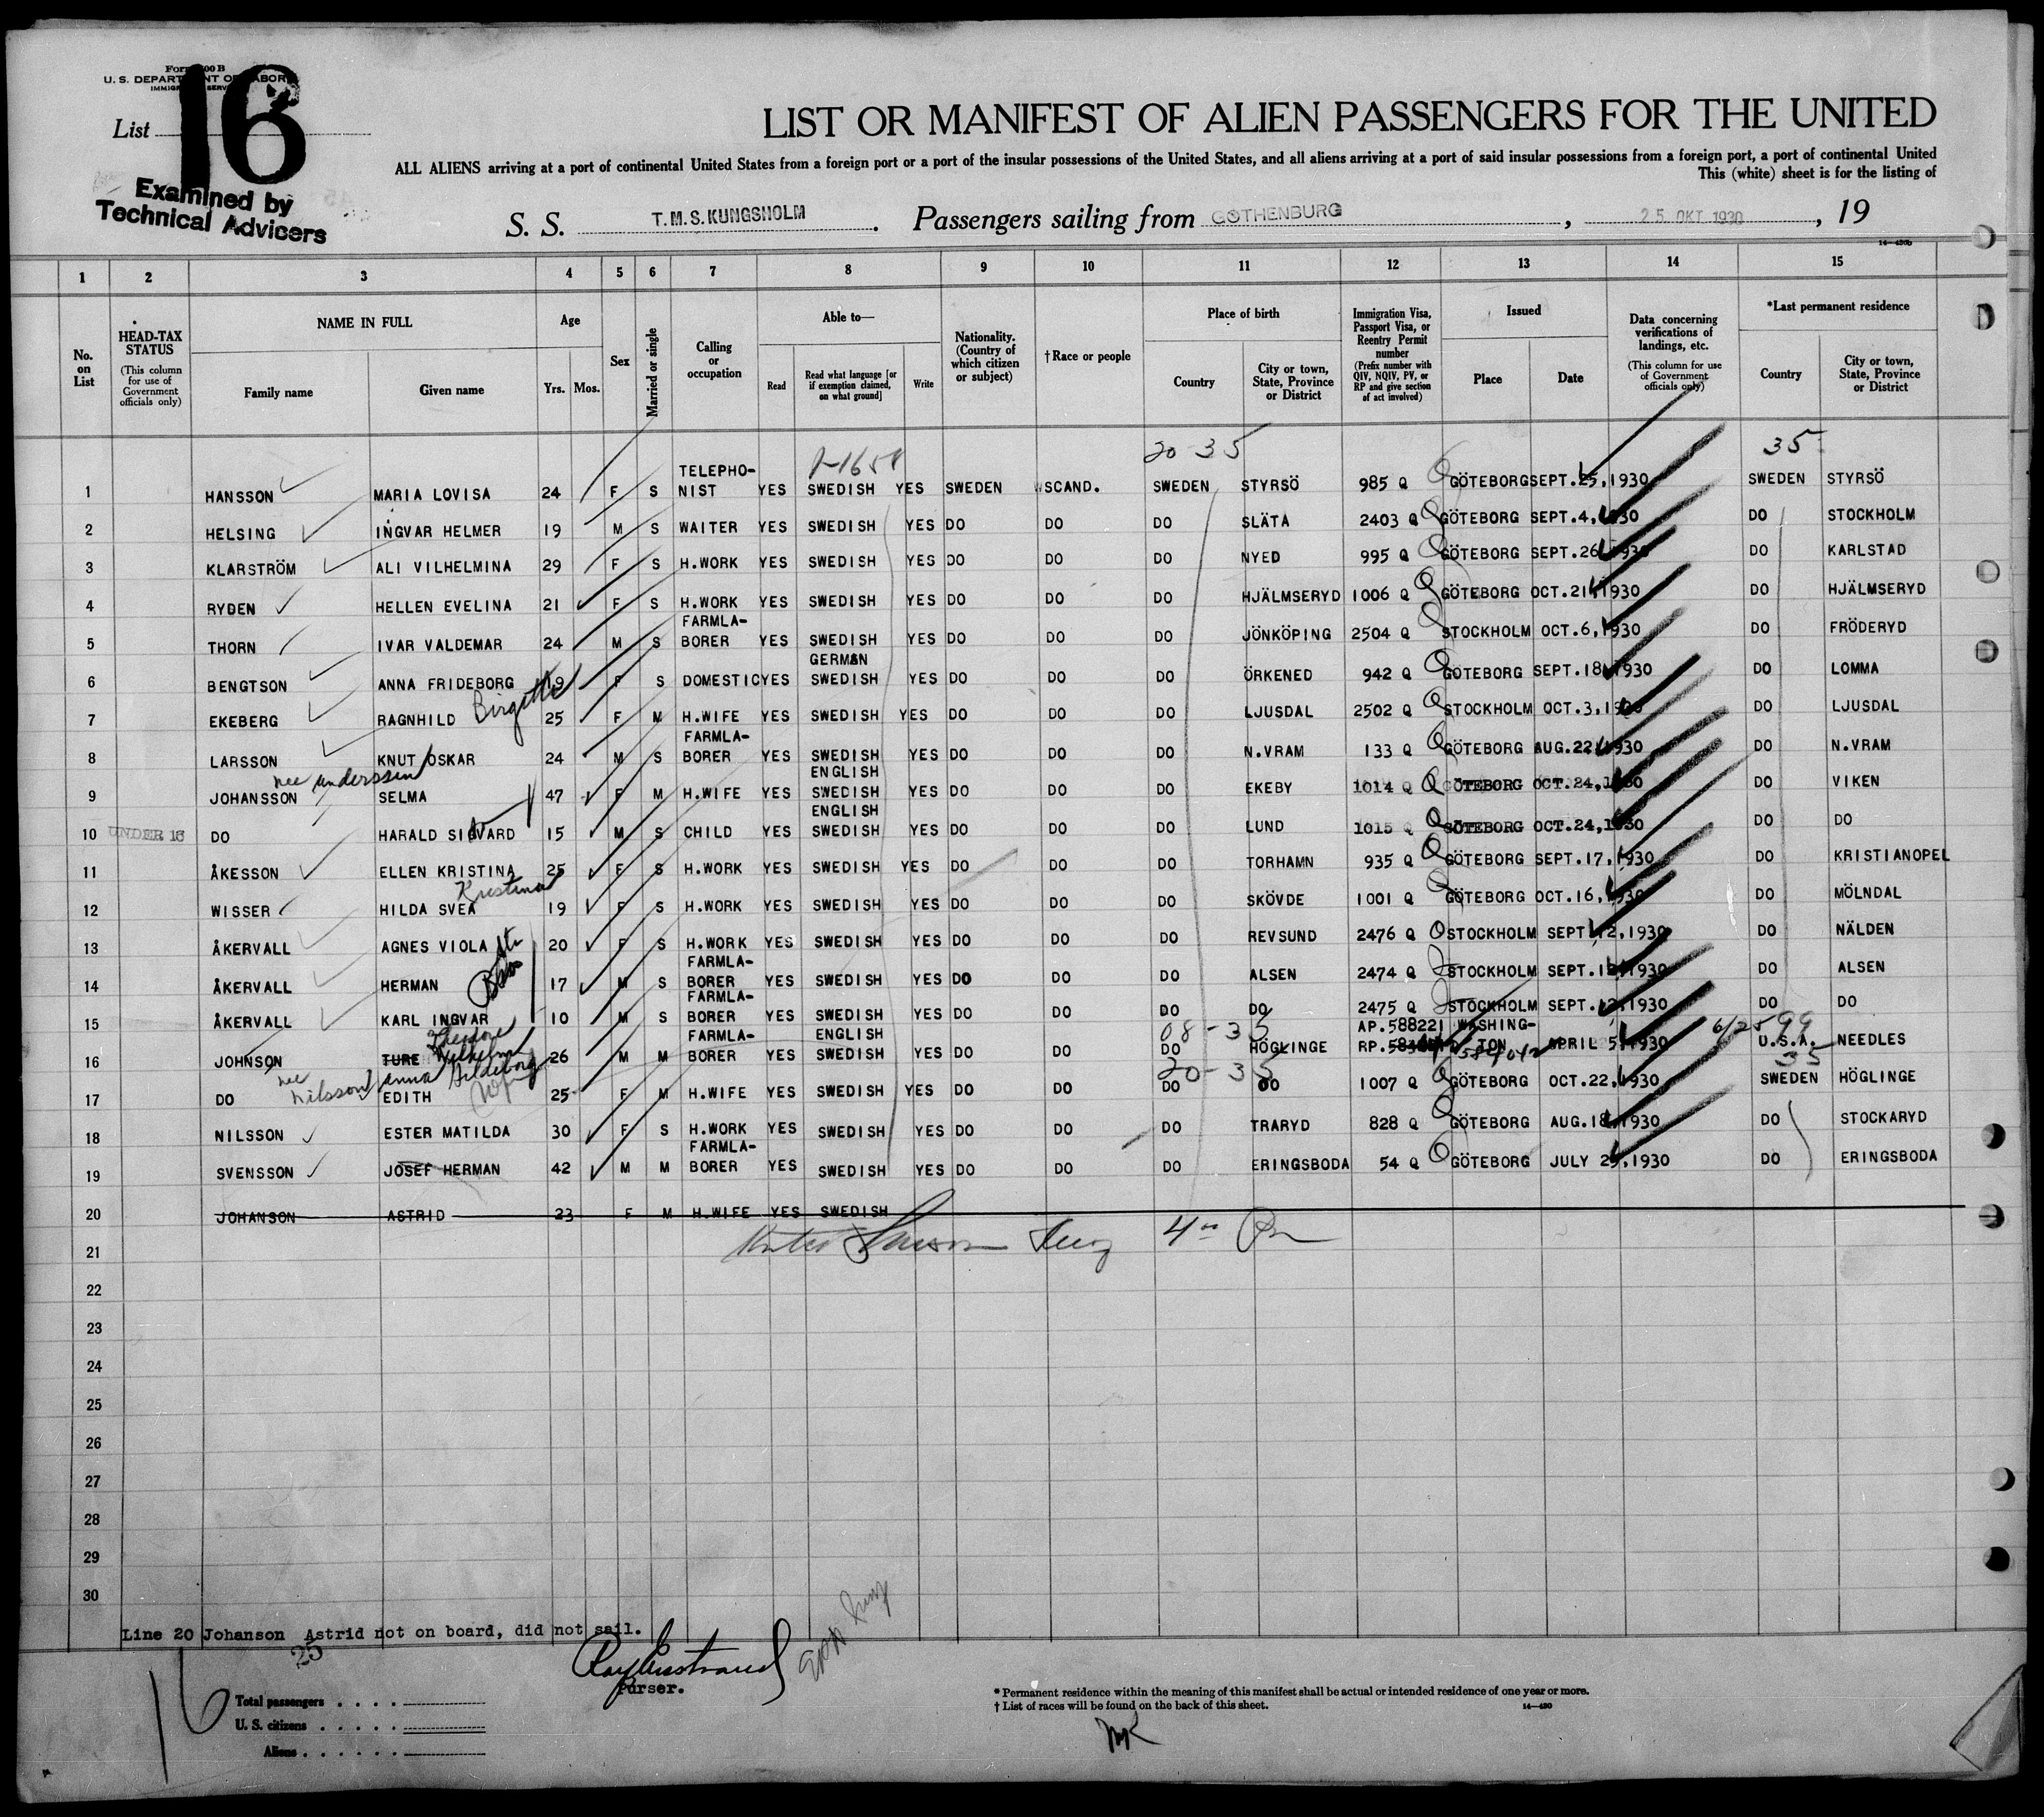 Form 500 B
U. S. DEPARTMENT OF LABOR
IMMIGRATION SERVICE
List 16
Examined by
Technical Advicers
LIST OR MANIFEST OF ALIEN PASSENGERS FOR THE UNITED
ALL ALIENS arriving at a port of continental United States from a foreign port or a port of the insular possessions of the United States, and all aliens arriving at a port of said insular possessions from a foreign port, a port of continental United
This (white) sheet is for the listing of
S. S. T.M.S.KUNGSHOLM. Passengers sailing from GOTHENBURG, 25 OKT 1930, 19
14—430b
1 2 3 4 5 6 7 8 9 10 11 12 13 14 15
No. on List
HEAD-TAX STATUS (This column for use of Government officials only)
NAME IN FULL Family name Given name
Age Yrs. Mos.
Sex
Married or single
Calling or occupation
Able to— Read Read what language [or if exemption claimed, on what ground] Write
Nationality. (Country of which citizen or subject)
†Race or people
Place of birth Country City or town, State, Province or District
Immigration Visa, Passport Visa, or Reentry Permit number (Prefix number with QIV, NQIV, PV, or RP and give section of act involved)
Issued Place Date
Data concerning verifications of landings, etc. (This column for use of Government officials only)
*Last permanent residence Country City or town, State, Province or District
20-35 35
1 HANSSON MARIA LOVISA 24 F S TELEPHO-NIST YES SWEDISH YES SWEDEN SCAND. SWEDEN STYRSÖ 985 Q GÖTEBORG SEPT.25,1930 SWEDEN STYRSÖ
2 HELSING INGVAR HELMER 19 M S WAITER YES SWEDISH YES DO DO DO SLÄTA 2403 Q GÖTEBORG SEPT.4,1930 DO STOCKHOLM
3 KLARSTRÖM ALI VILHELMINA 29 F S H.WORK YES SWEDISH YES DO DO DO NYED 995 Q GÖTEBORG SEPT.26,1930 DO KARLSTAD
4 RYDEN HELLEN EVELINA 21 F S H.WORK YES SWEDISH YES DO DO DO HJÄLMSERYD 1006 Q GÖTEBORG OCT.21,1930 DO HJÄLMSERYD
5 THORN IVAR VALDEMAR 24 M S FARMLA-BORER YES SWEDISH YES DO DO DO JÖNKÖPING 2504 Q STOCKHOLM OCT.6,1930 DO FRÖDERYD
6 BENGTSON ANNA FRIDEBORG 19 F S DOMESTIC YES GERMAN SWEDISH YES DO DO DO ÖRKENED 942 Q GÖTEBORG SEPT.18,1930 DO LOMMA
7 EKEBERG RAGNHILD Birgitte 25 F M H.WIFE YES SWEDISH YES DO DO DO LJUSDAL 2502 Q STOCKHOLM OCT.3,1930 DO LJUSDAL
8 LARSSON KNUT OSKAR 24 M S FARMLA-BORER YES SWEDISH YES DO DO DO N.VRAM 133 Q GÖTEBORG AUG.22,1930 DO N.VRAM
nee anderssen
9 JOHANSSON SELMA 47 F M H.WIFE YES ENGLISH SWEDISH YES DO DO DO EKEBY 1014 Q GÖTEBORG OCT.24,1930 DO VIKEN
10 UNDER 16 DO HARALD SIGVARD 15 M S CHILD YES ENGLISH SWEDISH YES DO DO DO LUND 1015 Q GÖTEBORG OCT.24,1930 DO DO
11 ÅKESSON ELLEN KRISTINA 25 F S H.WORK YES SWEDISH YES DO DO DO TORHAMN 935 Q GÖTEBORG SEPT.17,1930 DO KRISTIANOPEL
Kristina
12 WISSER HILDA SVEA 19 F S H.WORK YES SWEDISH YES DO DO DO SKÖVDE 1001 Q GÖTEBORG OCT.16,1930 DO MÖLNDAL
13 ÅKERVALL AGNES VIOLA 20 F S H.WORK YES SWEDISH YES DO DO DO REVSUND 2476 Q STOCKHOLM SEPT.12,1930 DO NÄLDEN
14 ÅKERVALL HERMAN 17 M S FARMLA-BORER YES SWEDISH YES DO DO DO ALSEN 2474 Q STOCKHOLM SEPT.12,1930 DO ALSEN
15 ÅKERVALL KARL INGVAR 10 M S FARMLA-BORER YES SWEDISH YES DO DO DO DO 2475 Q STOCKHOLM SEPT.12,1930 DO DO
08-35 6/25 99
16 JOHNSON TURE Theodore Wilhelm 26 M M FARMLA-BORER YES ENGLISH SWEDISH YES DO DO DO HÖGLINGE AP.588221 RP. 584012 WASHING-TON APRIL 5,1930 U.S.A. NEEDLES
nee nilsson anna Hildeborg 20-35 35
17 DO EDITH 25 F M H.WIFE YES SWEDISH YES DO DO DO DO 1007 Q GÖTEBORG OCT.22,1930 SWEDEN HÖGLINGE
18 NILSSON ESTER MATILDA 30 F S H.WORK YES SWEDISH YES DO DO DO TRARYD 828 Q GÖTEBORG AUG.18,1930 DO STOCKARYD
19 SVENSSON JOSEF HERMAN 42 M M FARMLA-BORER YES SWEDISH YES DO DO DO ERINGSBODA 54 Q GÖTEBORG JULY 25,1930 DO ERINGSBODA
20 JOHANSON ASTRID 23 F M H.WIFE YES SWEDISH
21
22
23
24
25
26
27
28
29
30
Line 20 Johanson Astrid not on board, did not sail.
25
Purser.
16
Total passengers
U. S. citizens
Aliens
* Permanent residence within the meaning of this manifest shall be actual or intended residence of one year or more.
† List of races will be found on the back of this sheet.
14—430